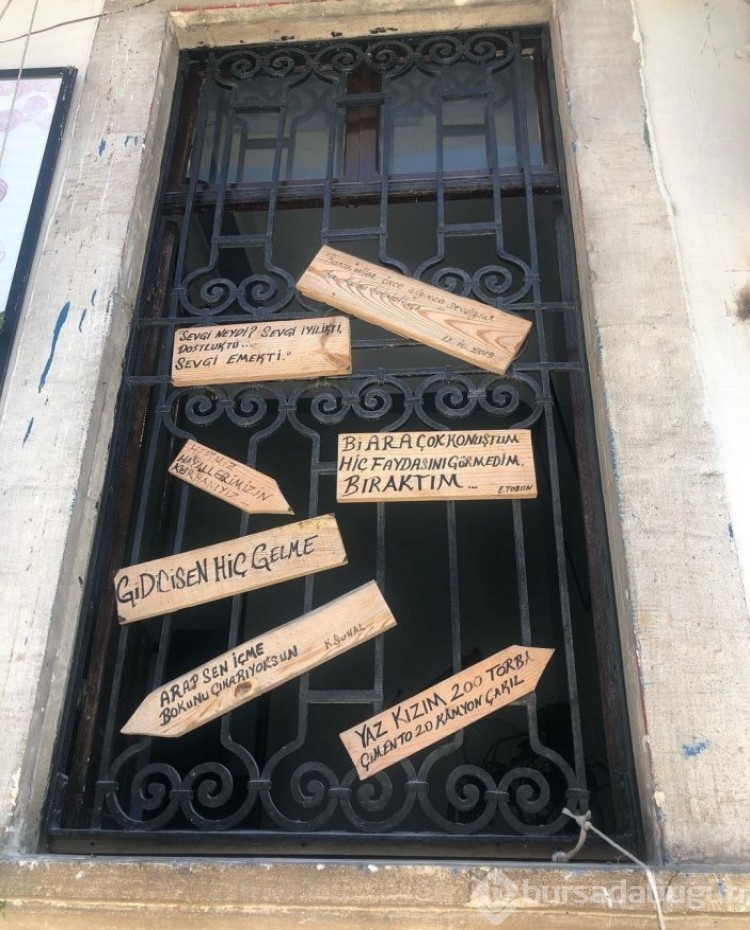 önce
SEVGİ NEYDİ? SEVGİ İYİLİKTİ,
DOSTLUKTU...
SEVGİ EMEKTİ."
Bİ ARA ÇOK KONUŞTUM
HİÇ FAYDASINI GÖRMEDİM.
BIRAKTIM...
E.TOSUN
HEPİMİZ
HAYALLERİMİZİN
KURBANIYIZ...
GİDCİSEN HİÇ GELME
ARAP SEN İÇME
BOKUNU ÇIKARIYOKSUN
K.SUNAL
YAZ KIZIM 200 TORBA
ÇİMENTO 20 KAMYON ÇAKIL
bursadabugun